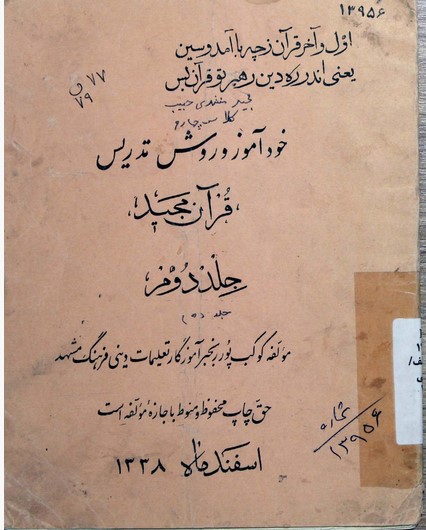 ۱۳۹۵۶
اول و آخر قرآن زچه با آمد و سین
یعنی اندر ره دین رهبر تو قرآن بس
۷۷ ق
۷۹
مجید حبیب
کلاس چهارم
خودآموز و روش تدریس
قُرآن مجید
جلد دوم
جلد (۲)
مؤلفه کوکب پور رنجبر آموزگار تعلیمات دینی فرهنگ مشهد
حق چاپ محفوظ و منوط با جازهٔ مؤلفه است
شماره
۱۳۹۵۶
اسفند ماه ۱۳۳۸